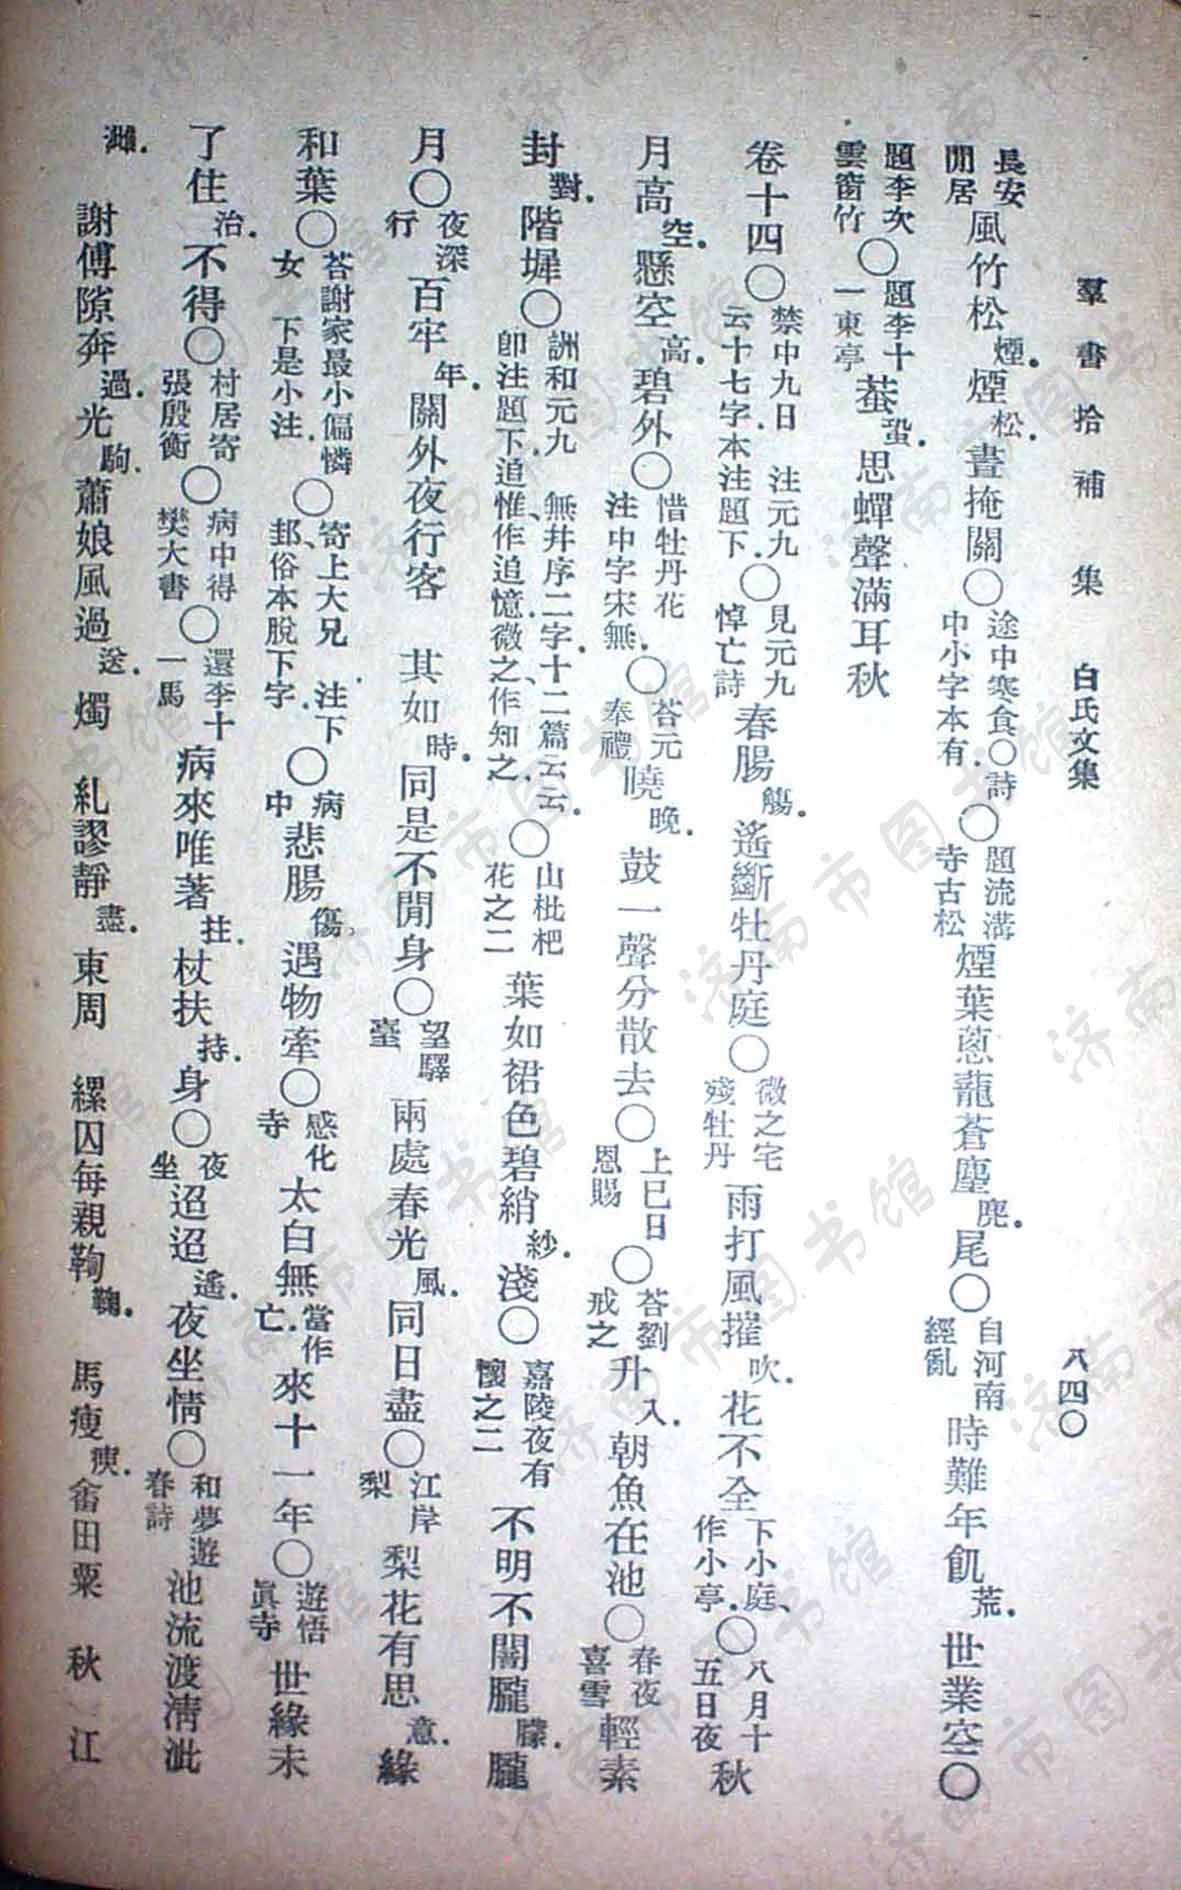 羣書拾補集 白氏文集 八四〇
長安閒居風竹松煙煙松晝掩關〇途中寒食〇詩中小字本有〇題流溝寺古松煙葉蔥蘢蒼塵麈尾〇自河南經亂時難年飢荒世業空〇
題李次雲窗竹〇題李十一東亭蚕蛩思蟬聲滿耳秋
卷十四〇禁中九日 注元九云十七字本注題下〇見元九悼亡詩春腸觴遙斷牡丹庭〇微之宅殘牡丹雨打風摧吹花不全下小庭、作小亭〇八月十五日夜秋
月高空懸空高碧外〇惜牡丹花注中字宋無〇荅元奉禮曉晚鼓一聲分散去〇上巳日恩賜〇荅劉戒之升入朝魚在池〇春夜喜雪輕素
封對階墀〇詶和元九 無并序二字十二篇云云卽注題下追惟作追憶微之、作知之〇山枇杷花之二葉如裙色碧綃紗淺〇嘉陵夜有懷之二不明不闇朧朦朧
月〇夜深行百牢年關外夜行客 其如時同是不閒身〇望驛臺兩處春光風同日盡〇江岸梨梨花有思意緣
和葉〇荅謝家最小偏憐女 下是小注〇寄上大兄 注下邽、俗本脫下字〇病中悲腸傷遇物牽〇感化寺太白無當作亡來十一年〇遊悟眞寺世緣未
了住治不得〇村居寄張殷衡〇病中得樊大書〇還李十一馬病來唯著拄杖扶持身〇夜坐迢迢遙夜坐情〇和夢遊春詩池流渡淸泚
謝傅隙奔過光駒蕭娘風過送燭 糺謬靜盡東周 縲囚每親鞫鞠 馬瘦瘐畬田粟 秋江